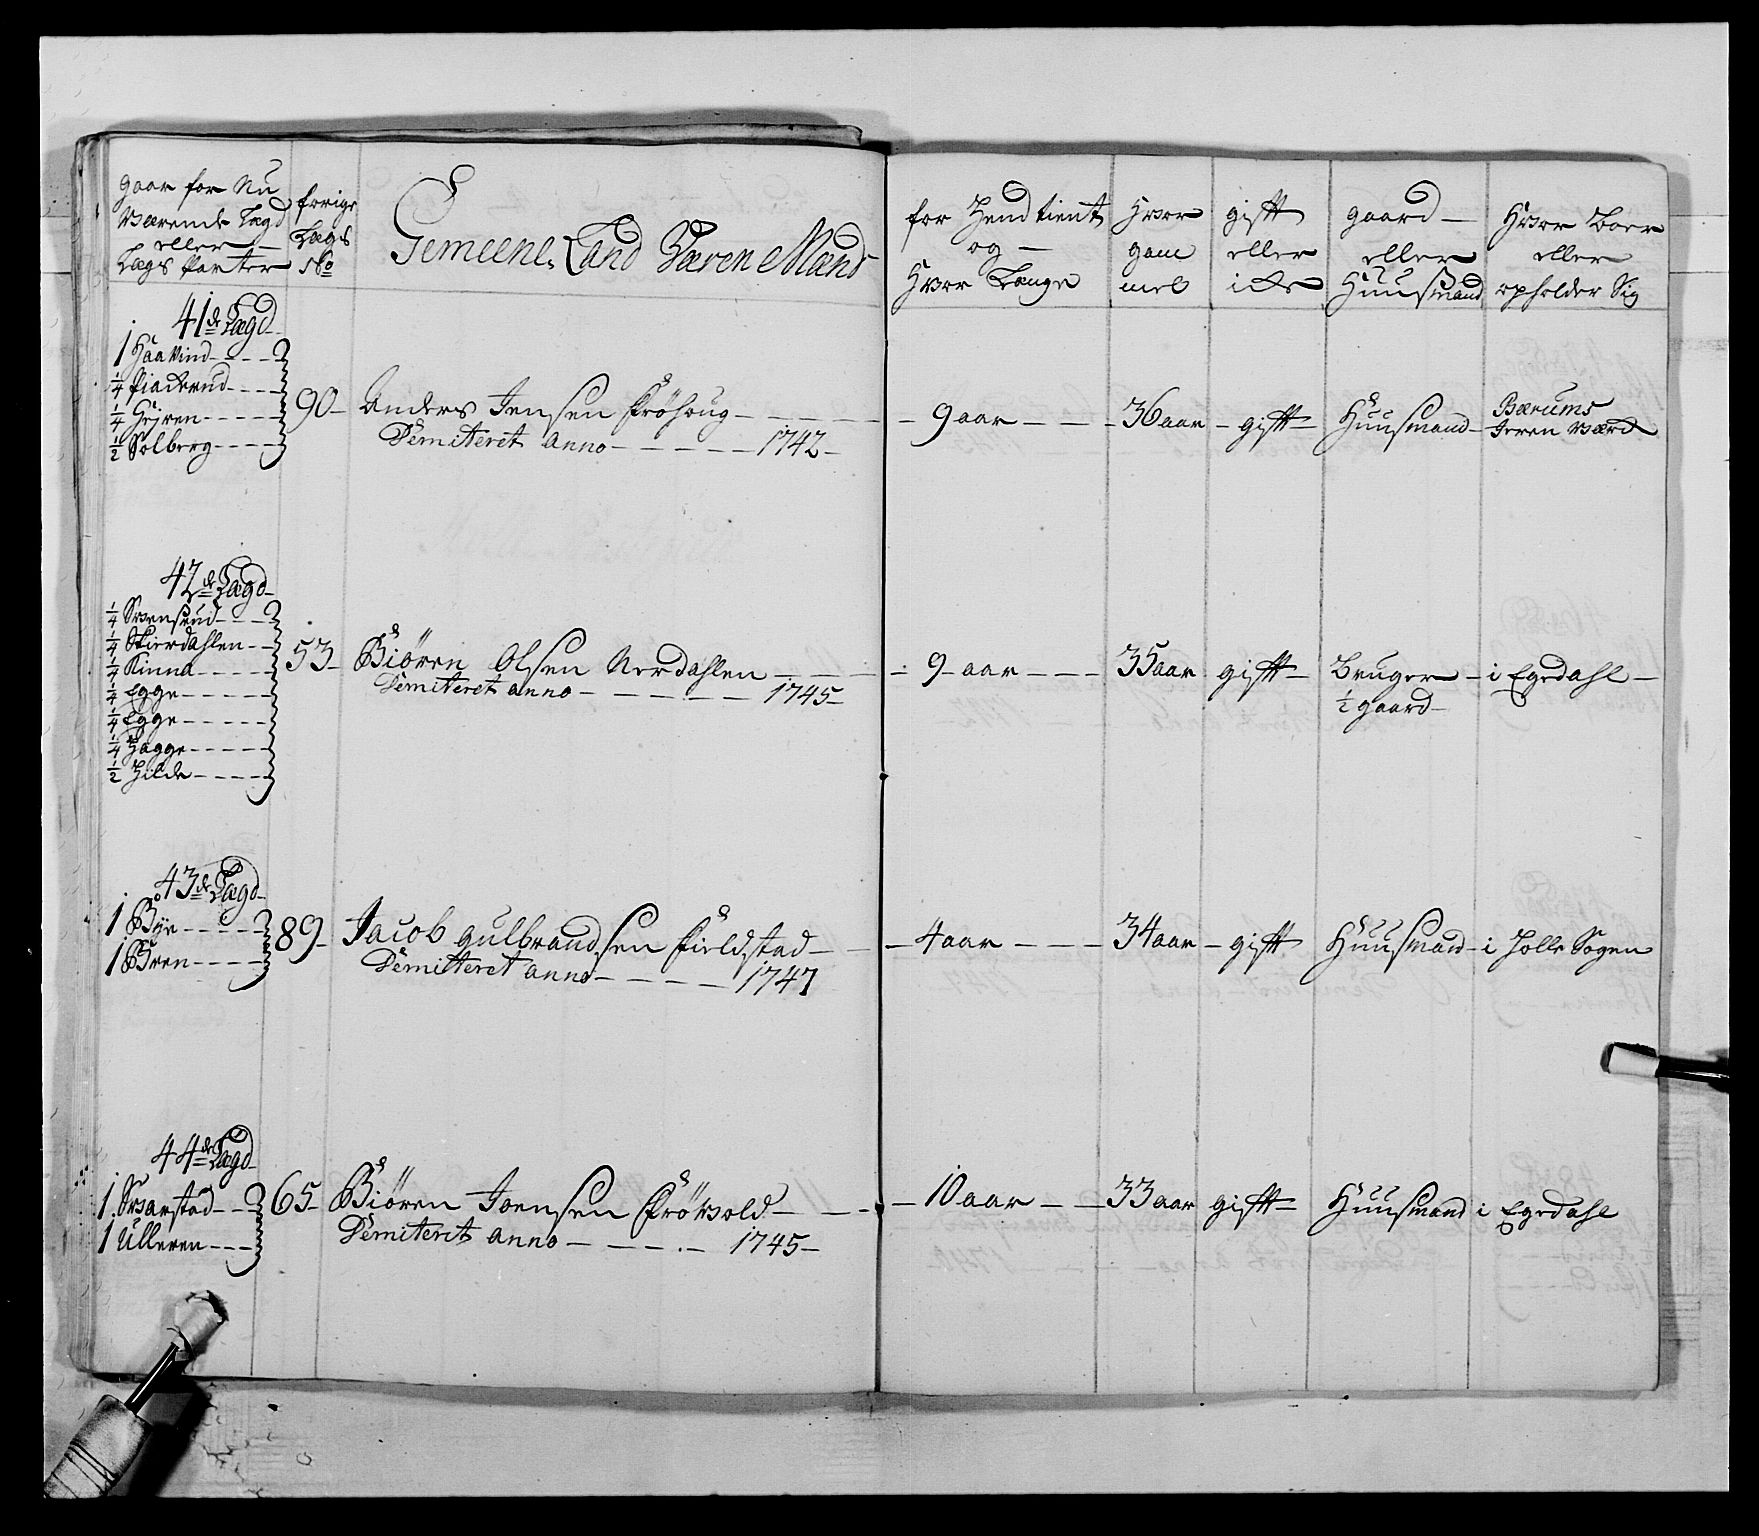 gaar for Nu
Værende Lægd
eller
Lægs Parter
forige
Lægs
No
Gemeene Land Værn Mænd
for Hend tient
og
Hvor Længe
Hvor
gam
mel
gift
eller
icke
gaard
eller
Huusmand
Hvor Boer
eller
opholder Sig
41de Lægd
1 Haavind
1/4 Piaderud
1/4 Gejren
1/2 Solberg
90 Anders Jensen Frøhoug
Demiteret anno 1742
9 aar
36 aar
gift
Huusmand
Bærums
Jern Værck
42de Lægd
1/4 Svensrud
1/4 Skierdahlen
1/4 Kinna
1/4 Egge
1/4 Egge
1/4 Hagge
1/2 Hilde
53 Biøren Olsen Nerdahlen
Demiteret anno 1745
9 aar
35 aar
gift
Bruger
1/2 gaard
i Egedahl
43de Lægd
1 Bye
1 Bren
89 Jacob gulbrandsen Fieldstad
Demitteret anno 1747
4 aar
34 aar
gift
Huusmand
i Holle Sogen
44de Lægd
1 Svarstad
1 Ulleren
65 Biøren Joensen Frøvold
Demiteret anno 1745
10 aar
33 aar
gift
Huusmand
i Egedahl